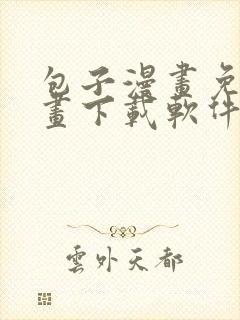 包子漫畫免
畫下載軟件
雲外天都